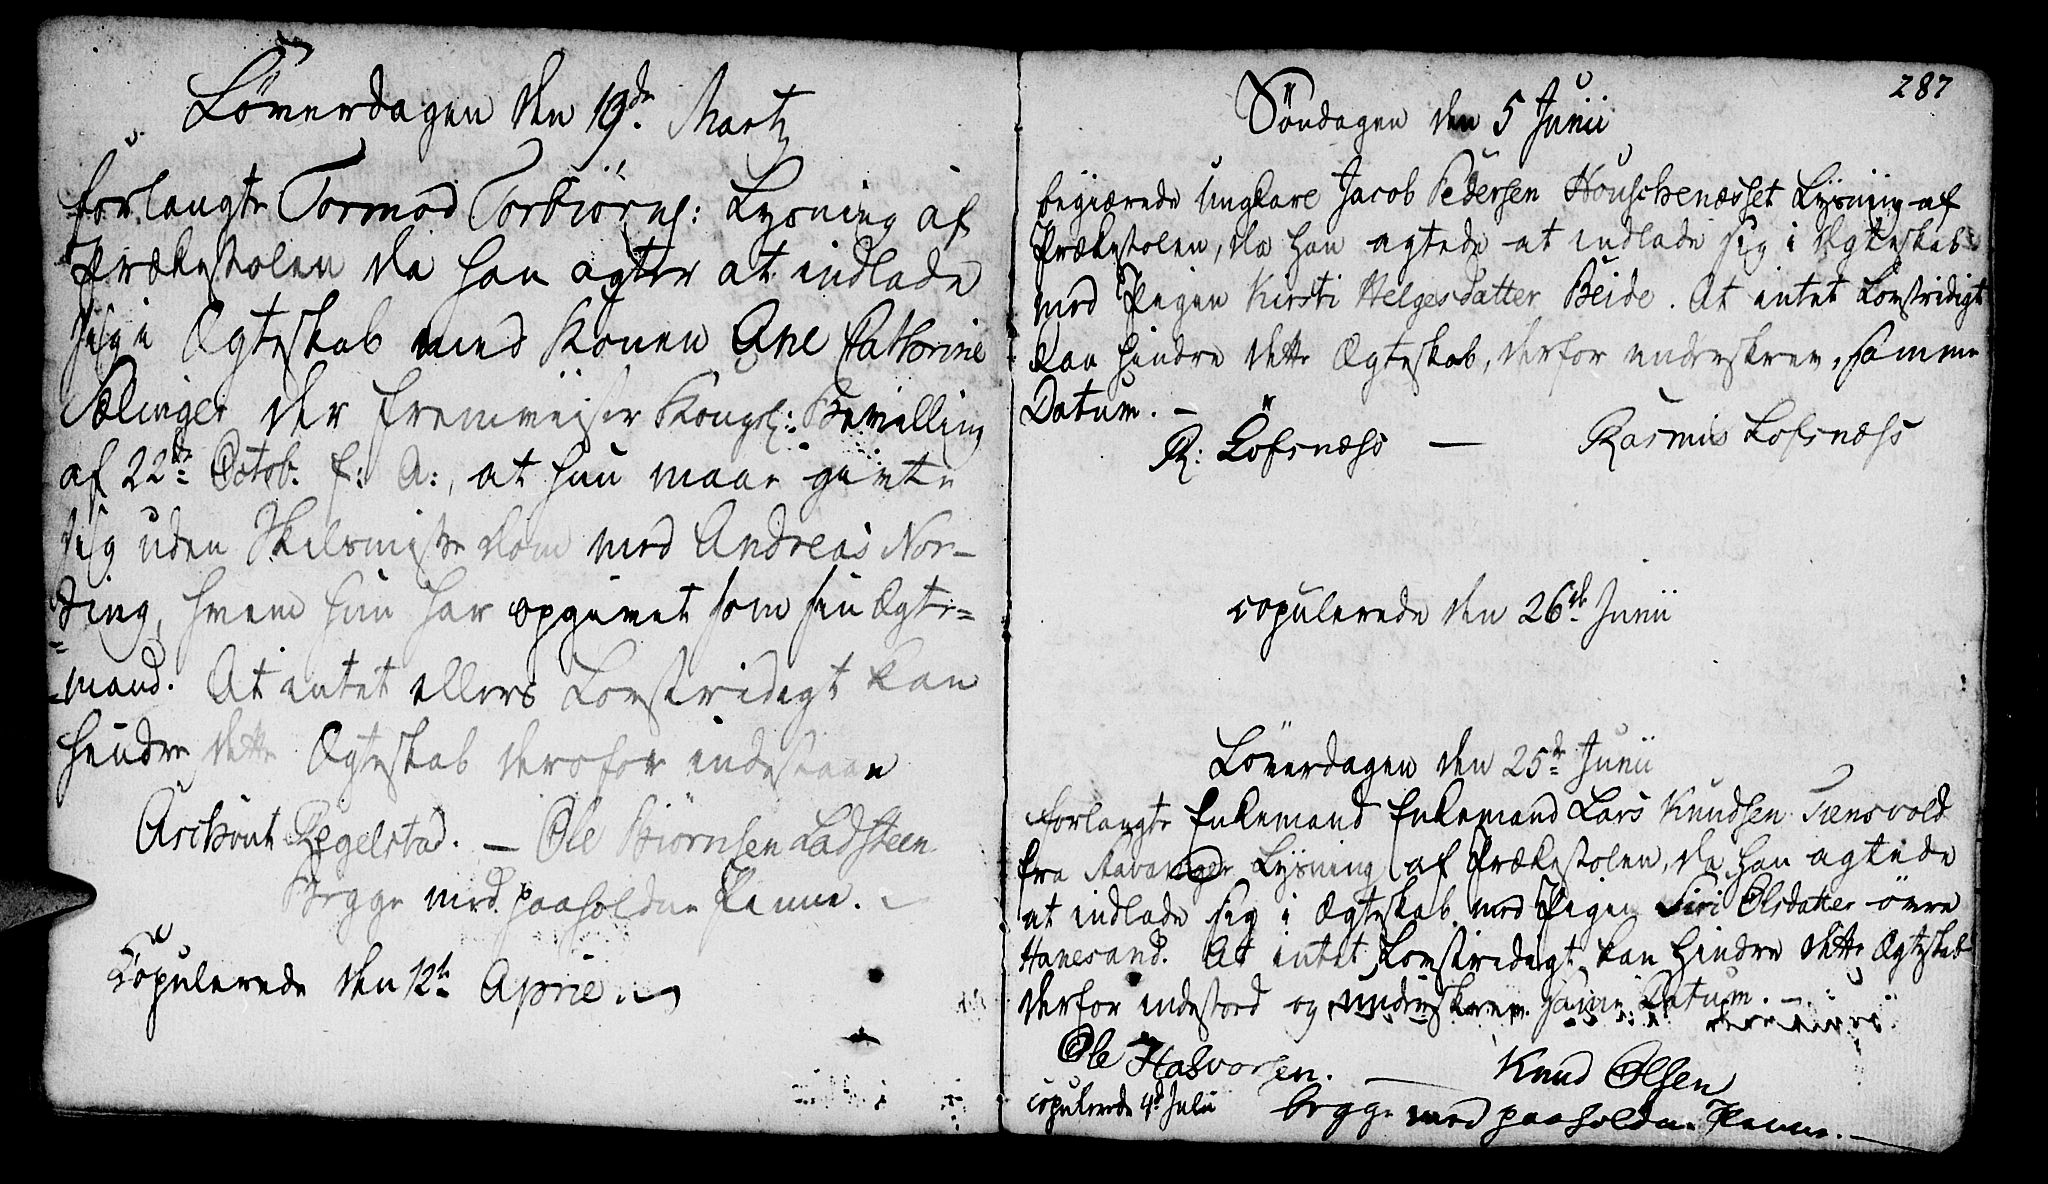 Löverdagen den 19de Martz
forlangte Tormod Torbiörns: Lysning af
Prækestolen da han agter at indlade
sig i Ægteskab med Konen Ane Cathrine
Sælinger der fremviser Kongel: Bevilling
af 22de Octob. f: A:, at hun maae givte
sig uden Skilsmisse dom med Andreas Nor-
ding, hvem hun har opgivet som sin Ægte-
mand. At intet ellers Lovstridigt kan
hindre dette Ægteskab derofor indestaae
Aschout Egelstad. — Ole Biörnsen Ladsteen
Begge med paaholdne Penne.
Copulerede den 12te Aprie.
287
Söndagen den 5 Junii
begiærede Ungkare Jacob Pedersen Houschenæsset Lysning af
Prækestolen, da han agtede at indlade sig i Ægteskab
med Pigen Kirsti Helgesdatter Beide. At intet Lovstridigt
kan hindre dette Ægteskab, derfor underskrev, samme
Datum. —
R: Löfsnæss — Rasmus Lofsnæss
copulerede den 26de Junii
Löverdagen den 25de Junii
forlangte Enkemand Enkemand Lars Knudsen Tiensvold
fra Stavanger Lysning af Prækestolen, da han agtede
at indlade sig i Ægteskab med Pigen Siri Olsdatter övre
Hanesand. At intet Lovstridigt kan hindre dette Ægteskab
derfor indestod og underskrev samme Datum. —
Ole Halvorsen. — Knud Olsen
copulerede 4de Julii begge med paaholdne Penne. —